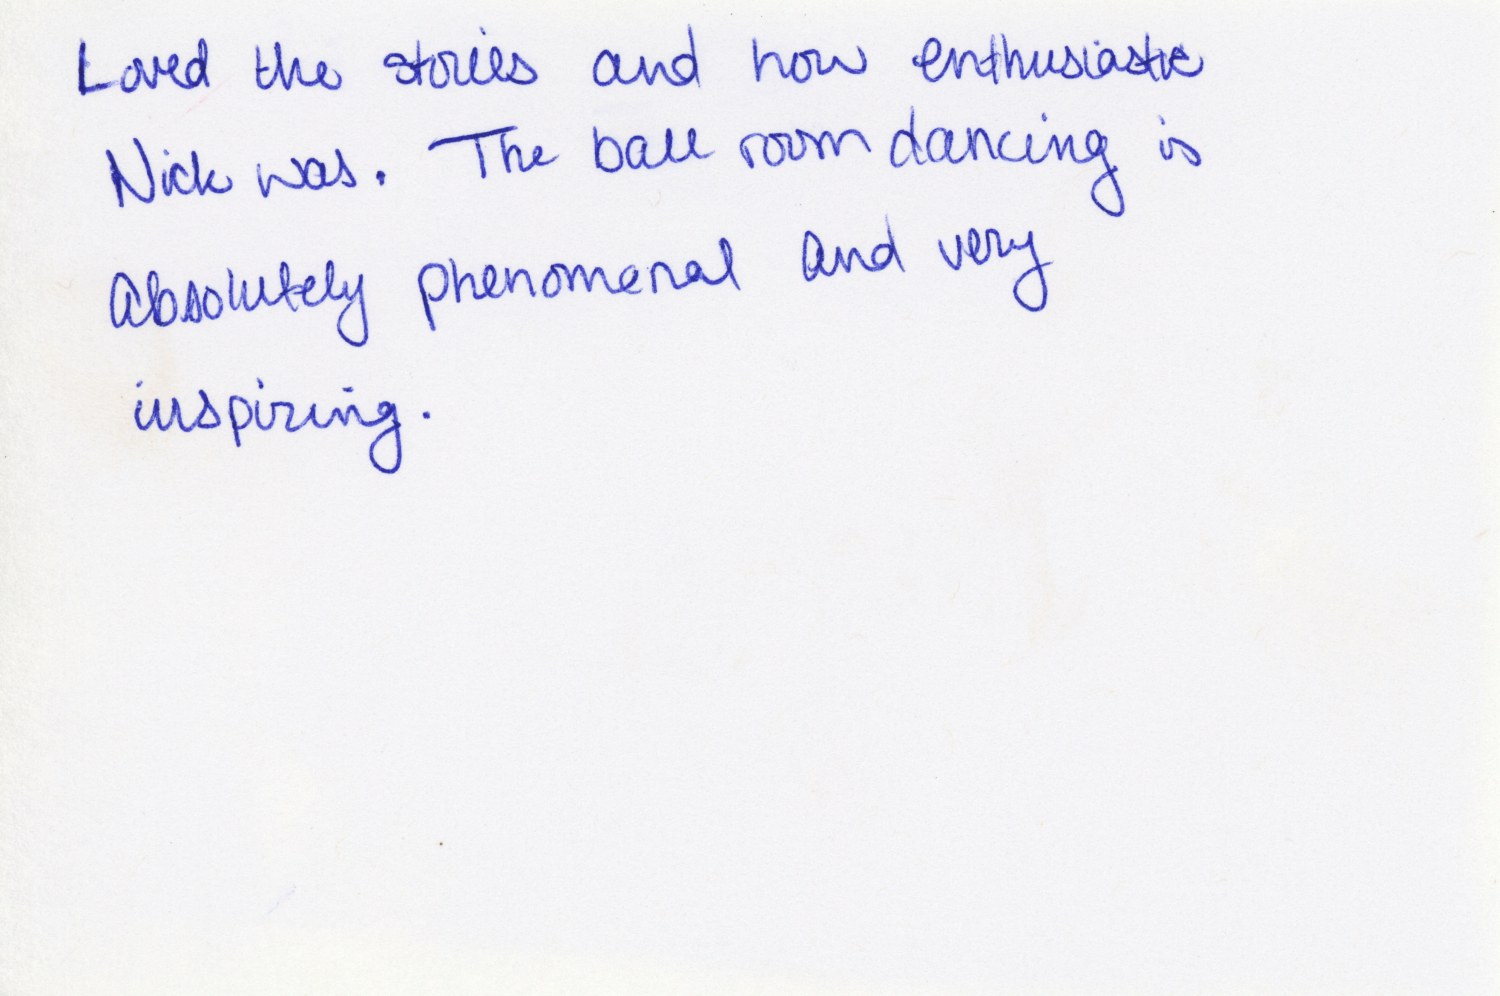 Loved the stories and how enthusiastic
Nick was. The ball room dancing is
absolutely phenomenal and very
inspiring.